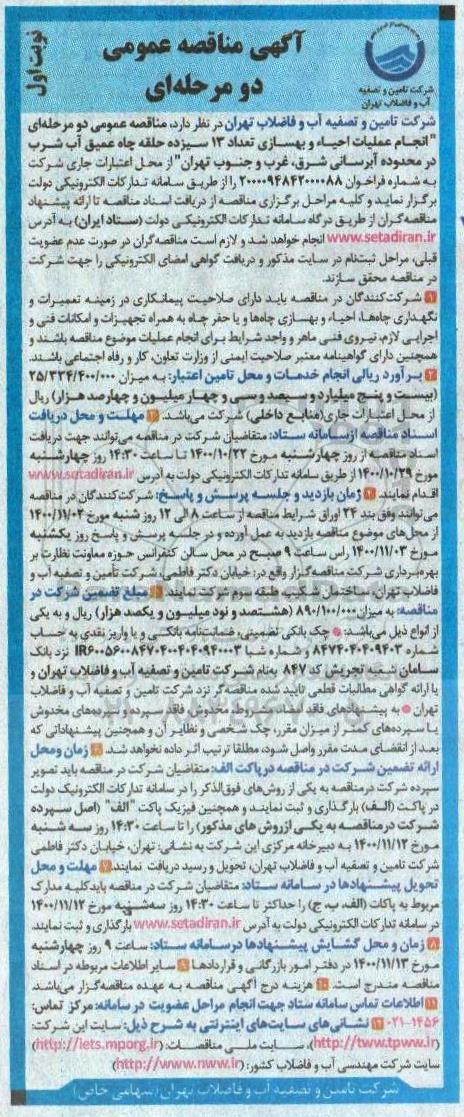 نوبت اول
آگهی مناقصه عمومی
دو مرحله‌ای
شرکت تامین و تصفیه
آب و فاضلاب تهران
شرکت تامین و تصفیه آب و فاضلاب تهران در نظر دارد، مناقصه عمومی دو مرحله‌ای
"انجام عملیات احیاء و بهسازی تعداد ۱۳ سیزده حلقه چاه عمیق آب شرب
در محدوده آبرسانی شرق، غرب و جنوب تهران" از محل اعتبارات جاری شرکت
به شماره فراخوان ۲۰۰۰۰۹۴۸۴۲۰۰۰۰۸۸ را از طریق سامانه تدارکات الکترونیکی دولت
برگزار نماید و کلیه مراحل برگزاری مناقصه از دریافت اسناد مناقصه تا ارائه پیشنهاد
مناقصه‌گران از طریق درگاه سامانه تدارکات الکترونیکی دولت (ستاد ایران) به آدرس
www.setadiran.ir انجام خواهد شد و لازم است مناقصه‌گران در صورت عدم عضویت
قبلی، مراحل ثبت‌نام در سایت مذکور و دریافت گواهی امضای الکترونیکی را جهت شرکت
در مناقصه محقق سازند.
۱ شرکت‌کنندگان در مناقصه باید دارای صلاحیت پیمانکاری در زمینه تعمیرات و
نگهداری چاه‌ها، احیاء و بهسازی چاه‌ها و یا حفر چاه به همراه تجهیزات و امکانات فنی و
اجرایی لازم، نیروی فنی ماهر و واجد شرایط برای انجام عملیات موضوع مناقصه باشند و
همچنین دارای گواهینامه معتبر صلاحیت ایمنی از وزارت تعاون، کار و رفاه اجتماعی باشند.
۲ برآورد ریالی انجام خدمات و محل تامین اعتبار: به میزان ۲۵/۳۳۴/۴۰۰/۰۰۰
(بیست و پنج میلیارد و سیصد و سی و چهار میلیون و چهارصد هزار) ریال
از محل اعتبارات جاری (منابع داخلی) شرکت می‌باشد. ۳ مهلت و محل دریافت
اسناد مناقصه از سامانه ستاد: متقاضیان شرکت در مناقصه می‌توانند جهت دریافت
اسناد مناقصه از روز چهارشنبه مورخ ۱۴۰۰/۱۰/۲۲ تا ساعت ۱۴:۳۰ روز چهارشنبه
مورخ ۱۴۰۰/۱۰/۲۹ از طریق سامانه تدارکات الکترونیکی دولت به آدرس www.setadiran.ir
اقدام نمایند. ۴ زمان بازدید و جلسه پرسش و پاسخ: شرکت‌کنندگان در مناقصه
می‌توانند وفق بند ۲۴ اوراق شرایط مناقصه از ساعت ۸ الی ۱۲ روز شنبه مورخ ۱۴۰۰/۱۱/۰۲
از محل‌های موضوع مناقصه بازدید به عمل آورده و در جلسه پرسش و پاسخ روز یکشنبه
مورخ ۱۴۰۰/۱۱/۰۳ راس ساعت ۹ صبح در محل سالن کنفرانس حوزه معاونت نظارت بر
بهره‌برداری شرکت مناقصه‌گزار واقع در: خیابان دکتر فاطمی، شرکت تأمین و تصفیه آب و
فاضلاب تهران، ساختمان شکیب، طبقه سوم شرکت نمایند. ۵ مبلغ تضمین شرکت در
مناقصه: به میزان ۸۹۰/۱۰۰/۰۰۰ (هشتصد و نود میلیون و یکصد هزار) ریال و به یکی
از انواع ذیل می‌باشد: چک بانکی تضمینی، ضمانت‌نامه بانکی و یا واریز نقدی به حساب
شماره ۸۴۷۴۰۴۰۴۰۹۴۰۳ و شماره شبا IR600560084704004040940003 نزد بانک
سامان شعبه تجریش کد ۸۴۷ بنام شرکت تامین و تصفیه آب و فاضلاب تهران و
یا ارائه گواهی مطالبات قطعی تایید شده مناقصه‌گر نزد شرکت تامین و تصفیه آب و فاضلاب
تهران به پیشنهادهای فاقد امضاء، مشروط، مخدوش، فاقد سپرده و سپرده‌های مخدوش
یا سپرده‌های کمتر از میزان مقرر، چک شخصی و نظایر آن و همچنین پیشنهاداتی که
بعد از انقضای مدت مقرر واصل شود، مطلقا ترتیب اثر داده نخواهد شد. ۶ زمان و محل
ارائه تضمین شرکت در مناقصه در پاکت الف: متقاضیان شرکت در مناقصه باید تصویر
سپرده شرکت در مناقصه به یکی از روش‌های فوق‌الذکر را در سامانه تدارکات الکترونیک دولت
در پاکت (الف) بارگذاری و ثبت نمایند و همچنین فیزیک پاکت "الف" (اصل سپرده
شرکت در مناقصه به یکی از روش های مذکور) را تا ساعت ۱۴:۳۰ روز سه شنبه
مورخ ۱۴۰۰/۱۱/۱۲ به دبیرخانه مرکزی این شرکت به نشانی: تهران، خیابان دکتر فاطمی
شرکت تامین و تصفیه آب و فاضلاب تهران، تحویل و رسید دریافت نمایند. ۷ مهلت و محل
تحویل پیشنهادها در سامانه ستاد: متقاضیان شرکت در مناقصه باید کلیه مدارک
مربوط به پاکات (الف، ب، ج) را حداکثر تا ساعت ۱۴:۳۰ روز سه‌شنبه مورخ ۱۴۰۰/۱۱/۱۲
در سامانه تدارکات الکترونیکی دولت به آدرس www.setadiran.ir بارگذاری و ثبت نمایند.
۸ زمان و محل گشایش پیشنهادها در سامانه ستاد: ساعت ۹ روز چهارشنبه
مورخ ۱۴۰۰/۱۱/۱۳ در دفتر امور بازرگانی و قراردادها ۹ سایر اطلاعات مربوطه در اسناد
مناقصه مندرج است. ۱۰ هزینه درج آگهی مناقصه به عهده مناقصه‌گزار می‌باشد.
۱۱ اطلاعات تماس سامانه ستاد جهت انجام مراحل عضویت در سامانه: مرکز تماس:
۰۲۱-۱۴۵۶ ۱۲ نشانی‌های سایت‌های اینترنتی به شرح ذیل: سایت این شرکت:
(http://tww.tpww.ir) سایت ملی مناقصات: (http://iets.mporg.ir)
سایت شرکت مهندسی آب و فاضلاب کشور: (http://www.nww.ir)
شرکت تامین و تصفیه آب و فاضلاب تهران (سهامی خاص)